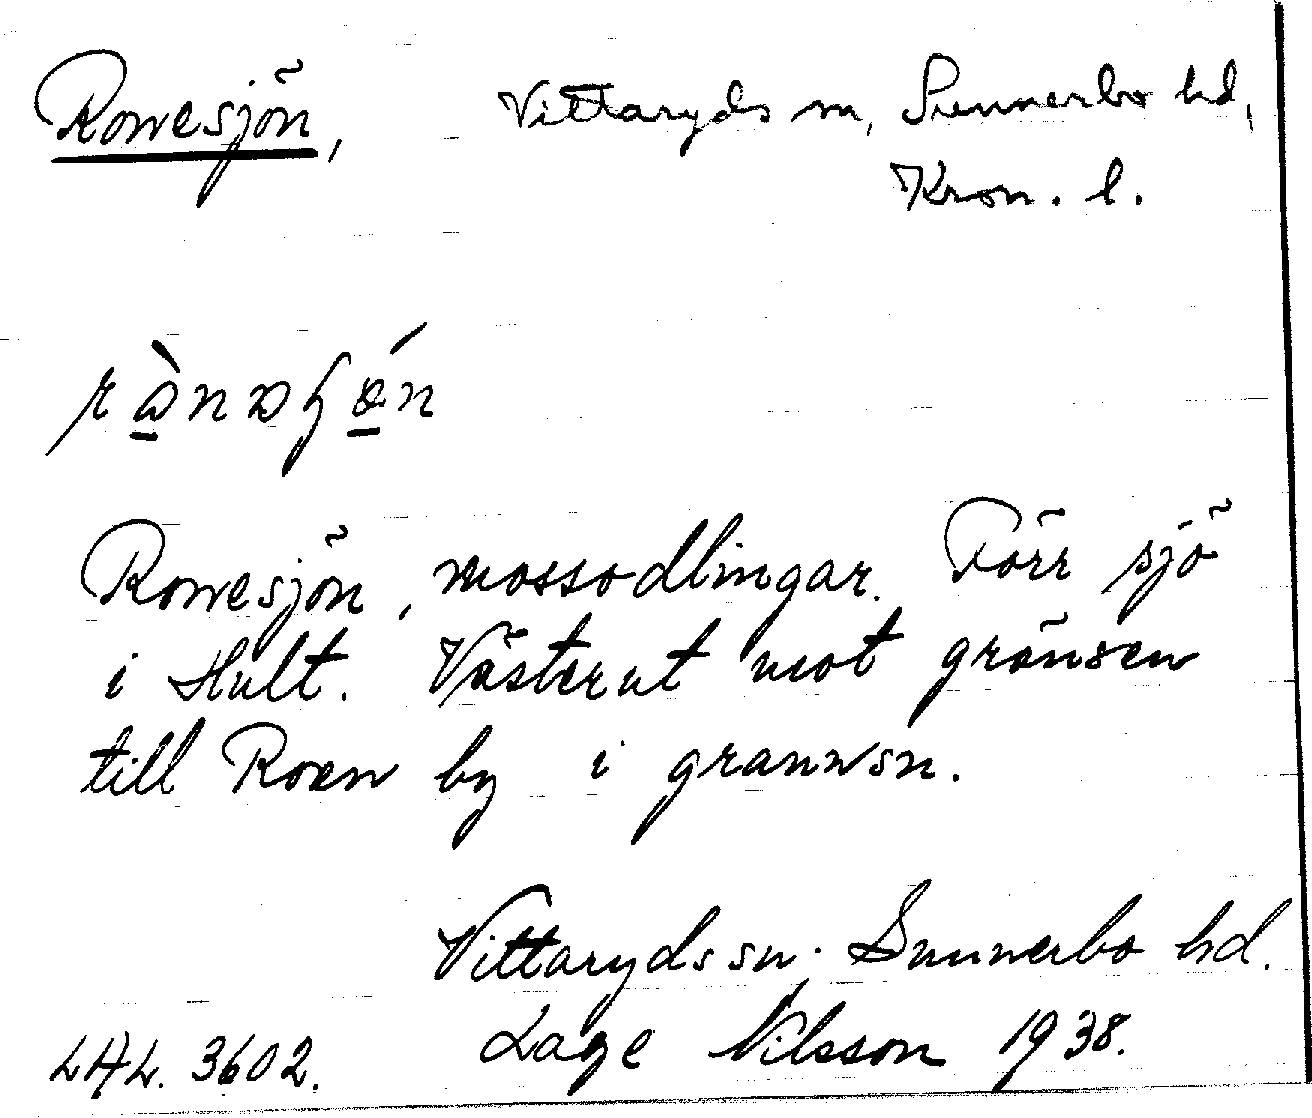 Ronnesjön, Vittaryds sn, Sunnerbo hd,
Kron. l.
Ronnesjön, mossodlingar. Förr sjö
i Hult. Västerut mot gränsen
till Roen by i grannsn.
Vittaryds sn. Sunnerbo hd.
LAL. 3602. Lage Nilsson 1938.